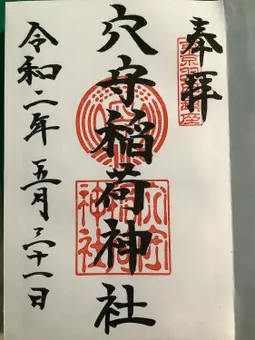 奉拝
東京羽田鎮座
穴守稲荷神社
穴守
稲荷
神社
令和二年 五月 三十一日